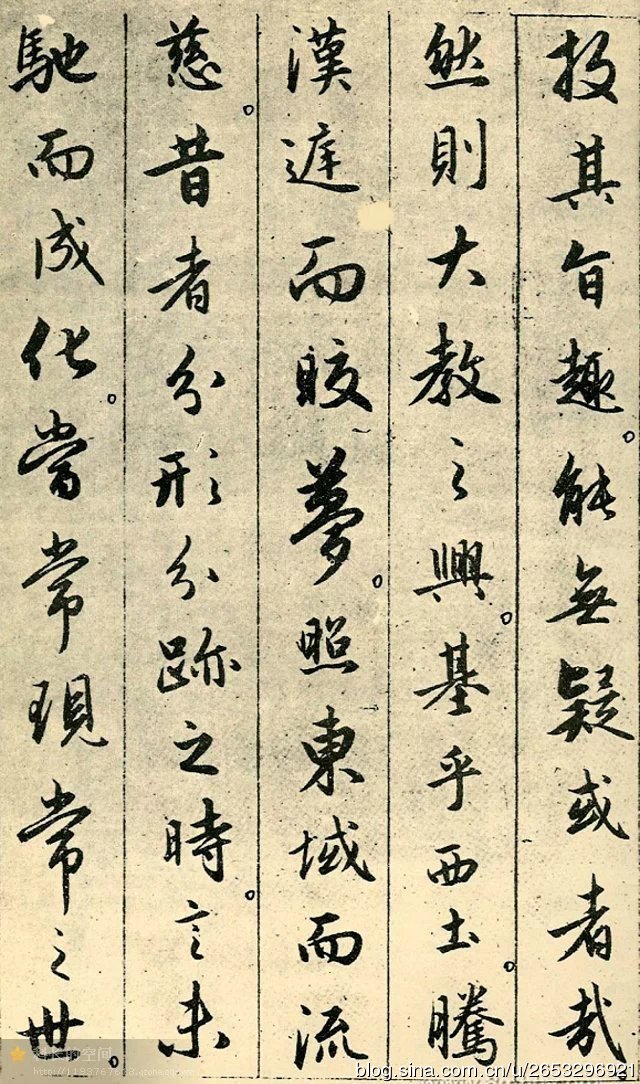 投其旨趣。能無疑或者哉
然則大教之興。基乎西土。騰
漢庭而皎夢。照東域而流
慈。昔者分形分跡之時。言未
馳而成化。當常現常之世。
的空间
blog.sina.com.cn/u/2653296921